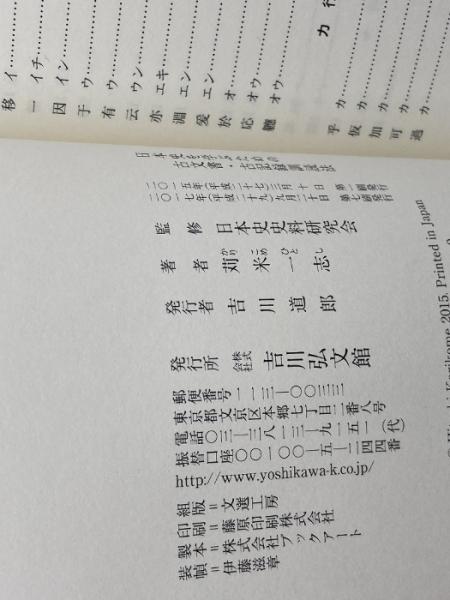 移 イ……………
一 イチ……………
因 イン……………
于 ウ……………
有 ウ……………
云 ウン……………
亦 エキ……………
淵 エン……………
爰 エン……………
於 オ……………
応 オウ……………
オウ……………
カ行
乎 カ……………
仮 カ……………
加 カ……………
可 カ……………
過 カ……………
日本史を学ぶための
古文書・古記録訓読法
二〇一五年(平成二十七)三月 十 日 第一刷発行
二〇一七年(平成二十九)九月二十日 第七刷発行
監 修 日本史史料研究会
著 者 苅米一志
かり こめ ひと し
発行者 吉川道郎
発行所 株式会社 吉川弘文館
郵便番号一一三―〇〇三三
東京都文京区本郷七丁目二番八号
電話〇三―三八一三―九一五一(代)
振替口座〇〇一〇〇―五―二四四番
http://www.yoshikawa-k.co.jp/
組版＝文選工房
印刷＝藤原印刷株式会社
製本＝株式会社ブックアート
装幀＝伊藤滋章
Karikome 2015. Printed in Japan